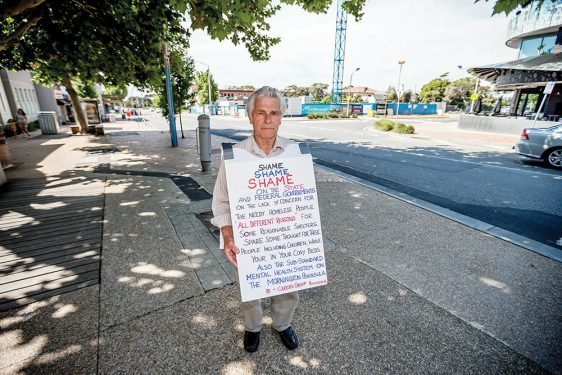 SHAME
SHAME
SHAME
ON THE STATE
AND FEDERAL GOVERNMENTS
ON THE LACK OF CONCERN FOR
THE NEEDY HOMELESS PEOPLE
"ALL DIFFERENT REASONS" FOR
SOME REASONABLE SHELTERS.
SPARE SOME THOUGHT FOR THESE
PEOPLE INCLUDING CHILDREN, WHILE
YOUR, IN YOUR COSY BEDS.
ALSO THE SUB-STANDARD
MENTAL HEALTH SYSTEM ON
THE MORNINGTON PENINSULA.
CARERS GROUP